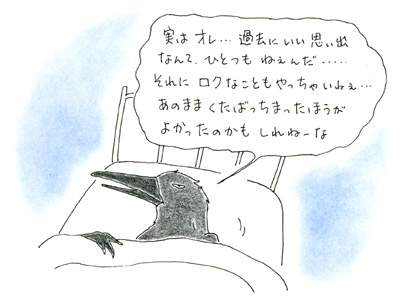 実は オレ… 過去にいい思い出
なんて、ひとつも ねぇんだ……
それに ロクなことも やっちゃいねぇ…
あのまま くたばっちまったほうが
よかったのかも しれねーな